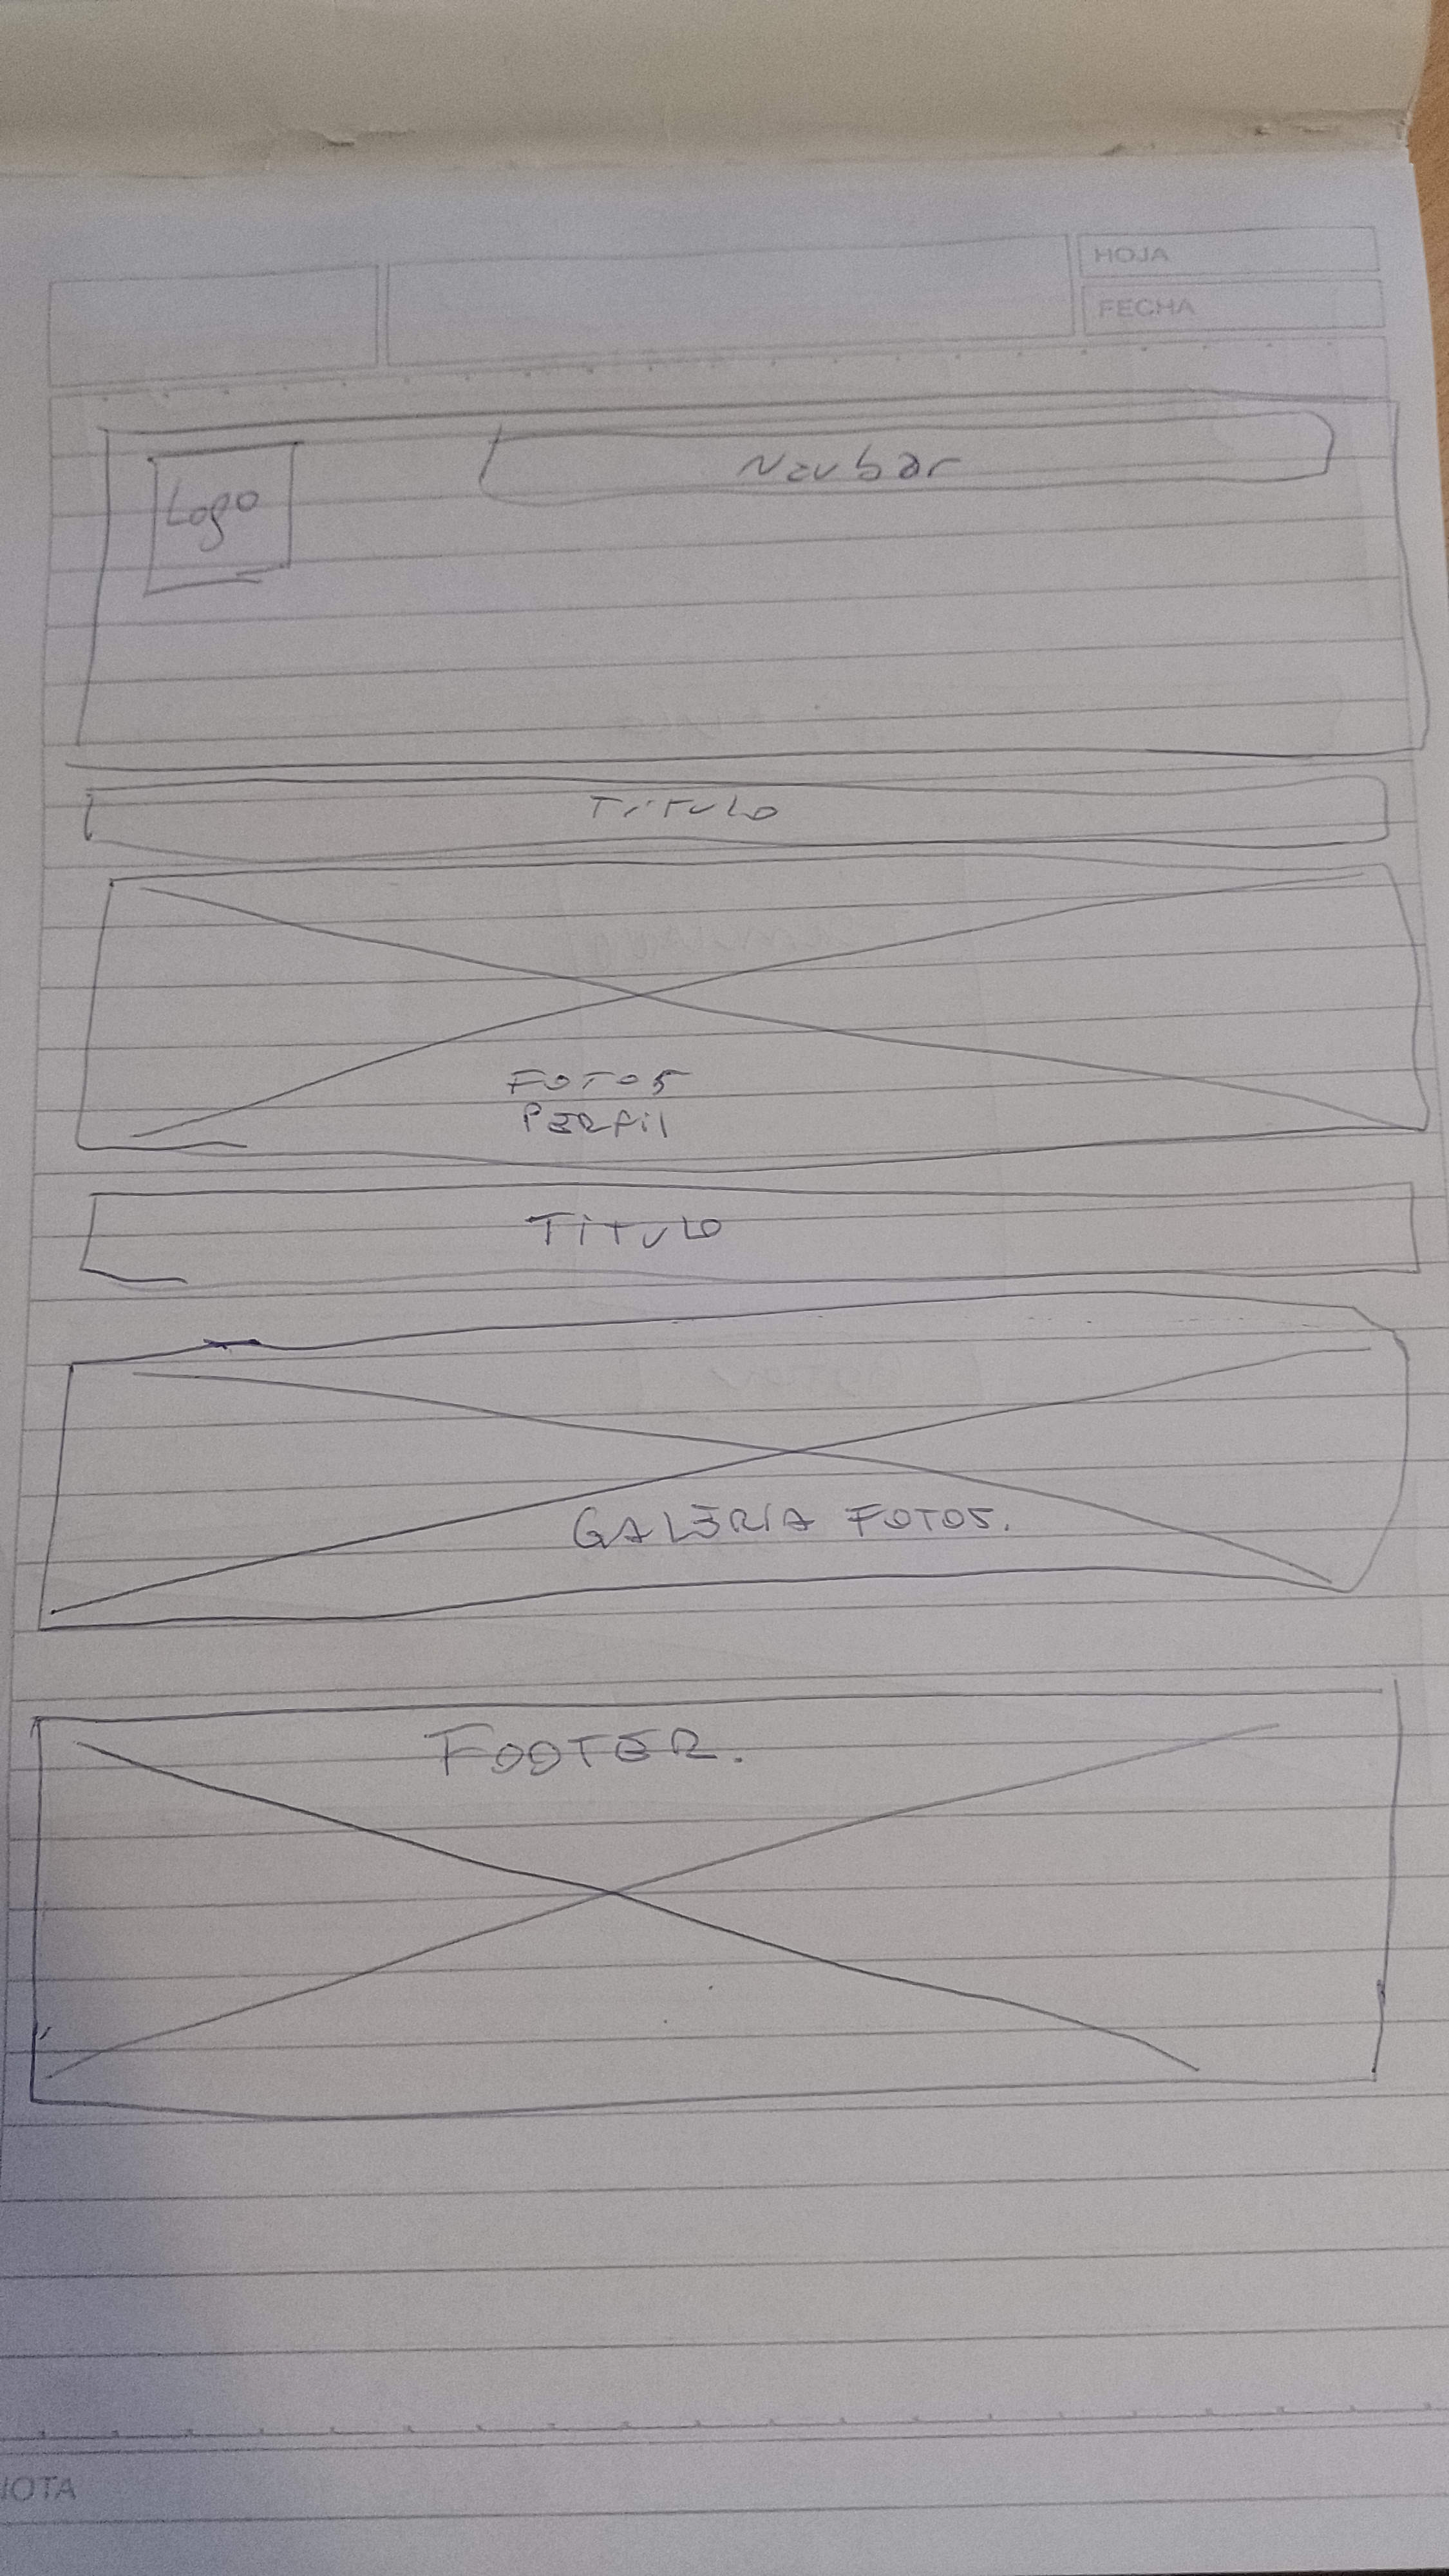 HOJA
FECHA
Logo
Navbar
TíTULO
FOTOS
PERfil
TíTULO
GALERíA FOTOS.
FOOTER.
NOTA